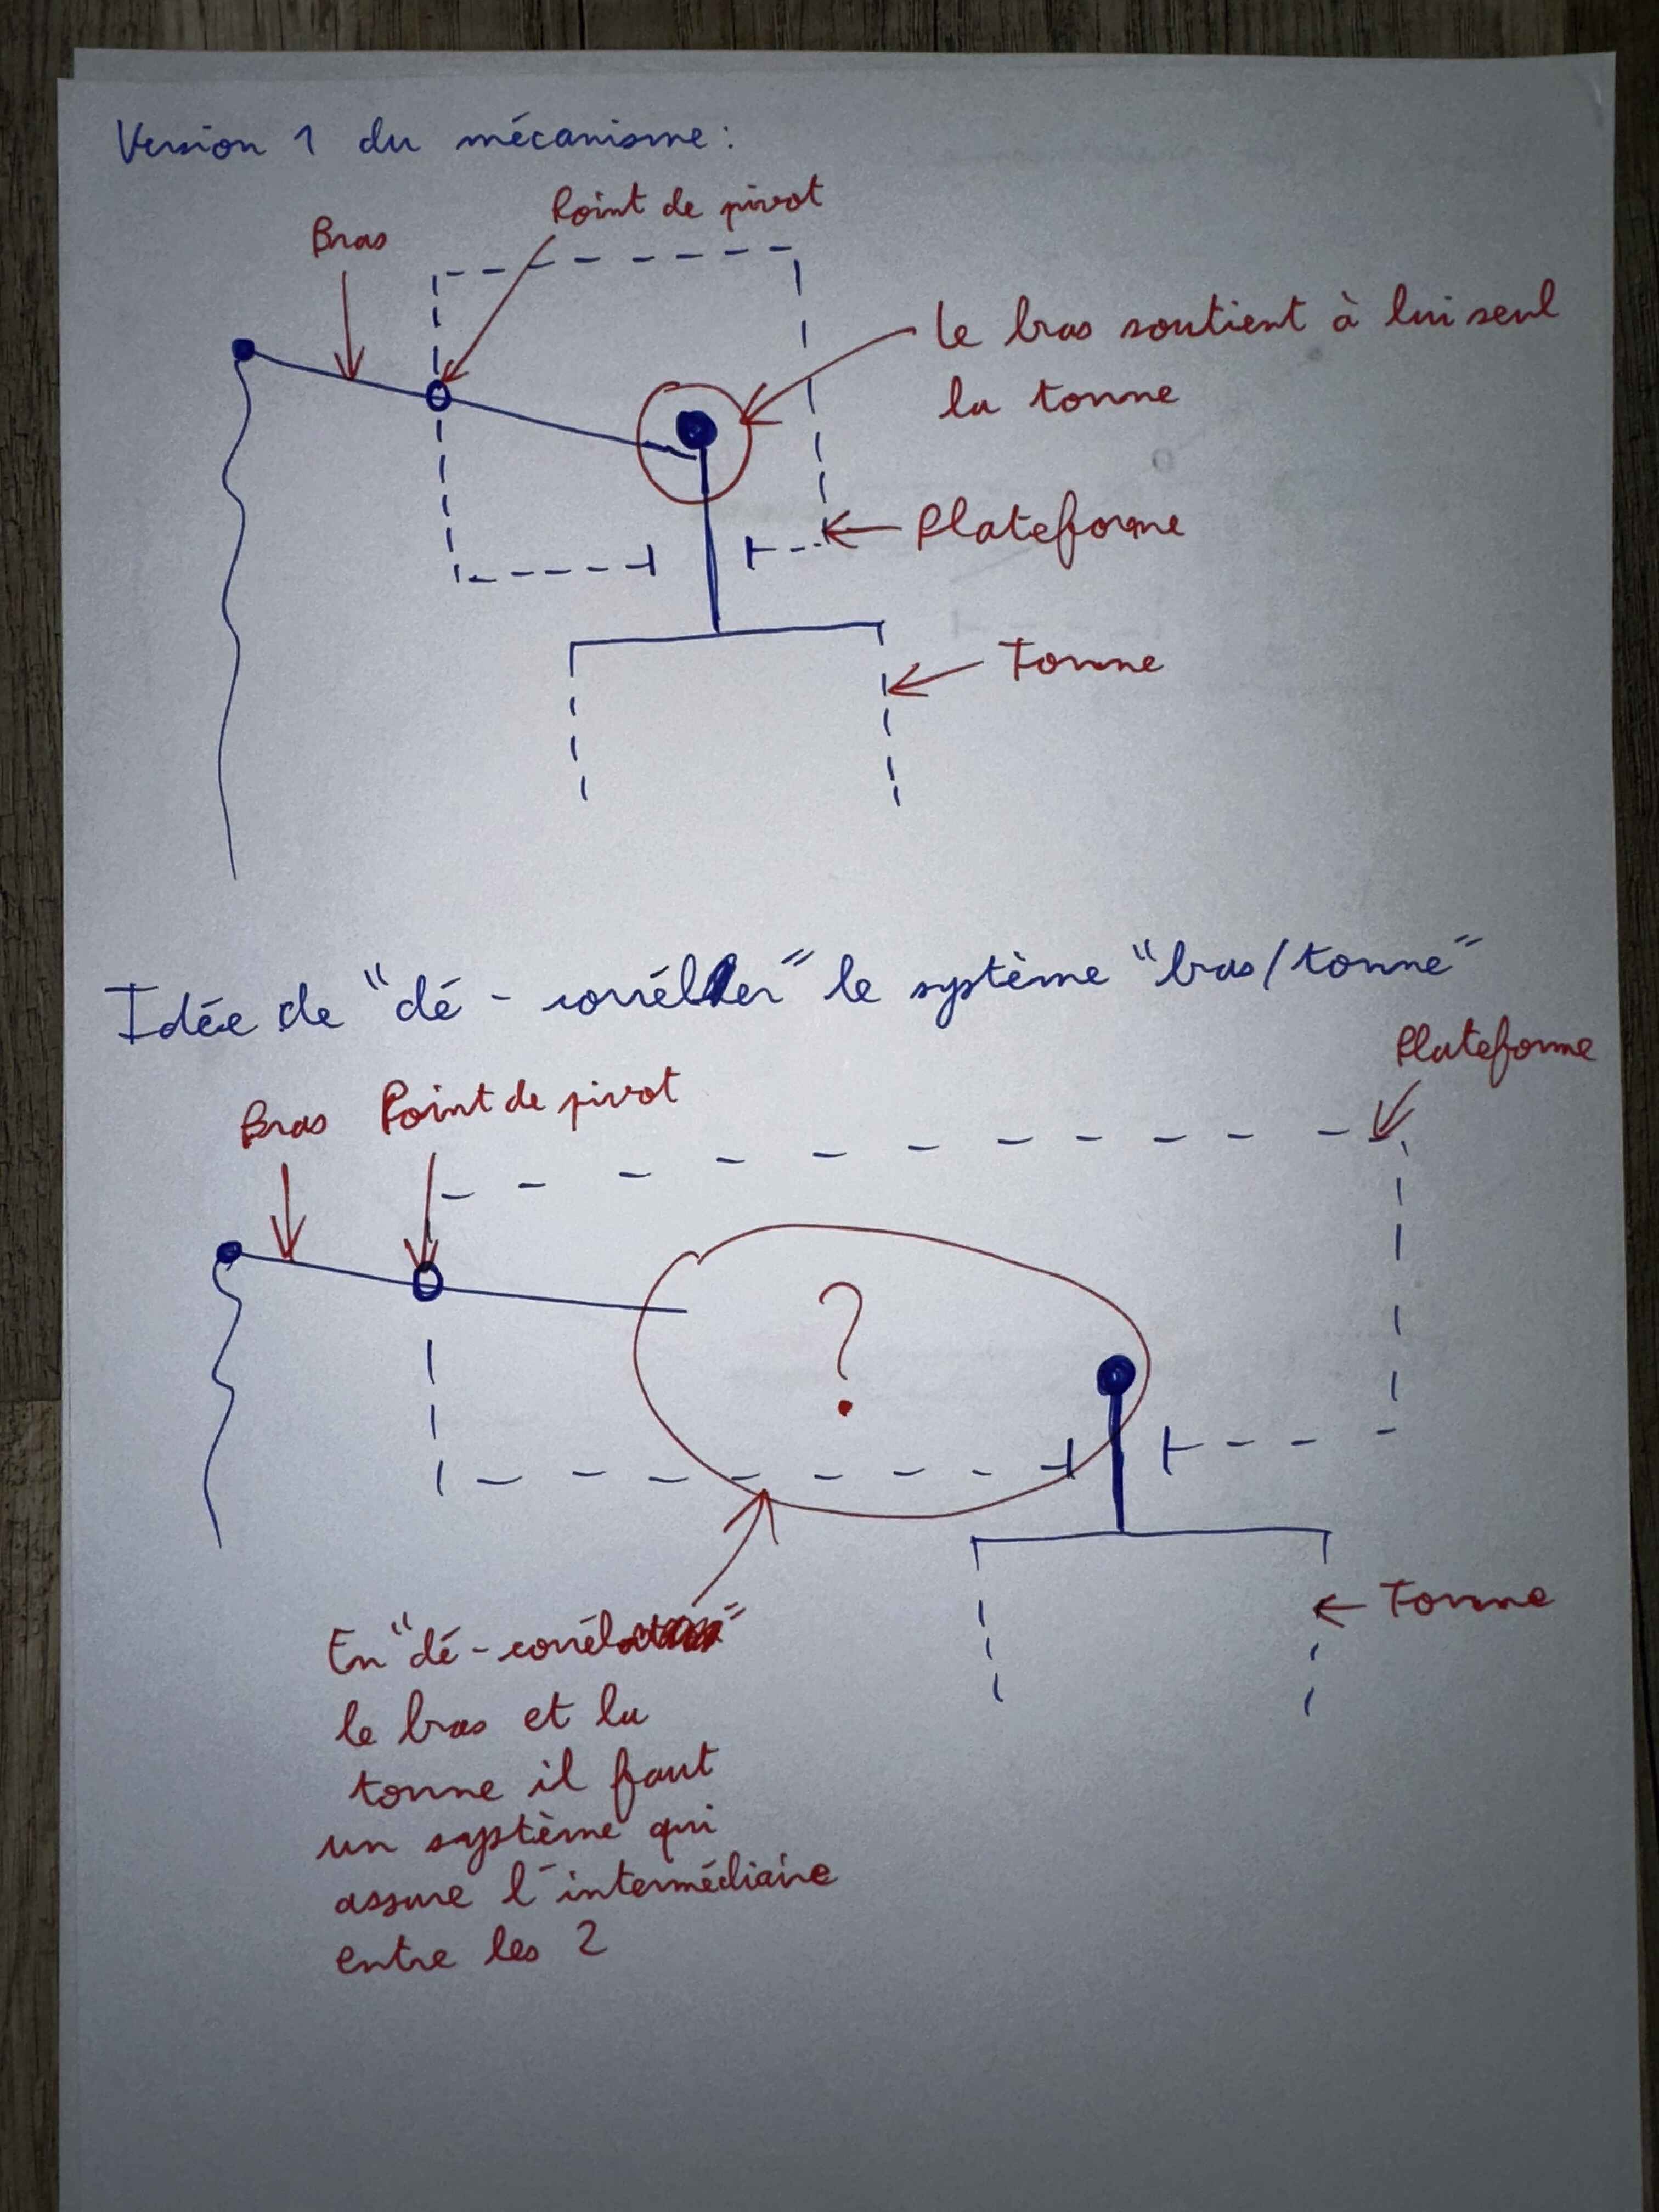 Version 1 du mécanisme :
Point de pivot
Bras
le bras soutient à lui seul
la tonne
Plateforme
Tonne
Idée de "dé-corréler" le système "bras/tonne"
Plateforme
Bras Point de pivot
?
Tonne
En "dé-corrélant"
le bras et la
tonne il faut
un système qui
assure l'intermédiaire
entre les 2